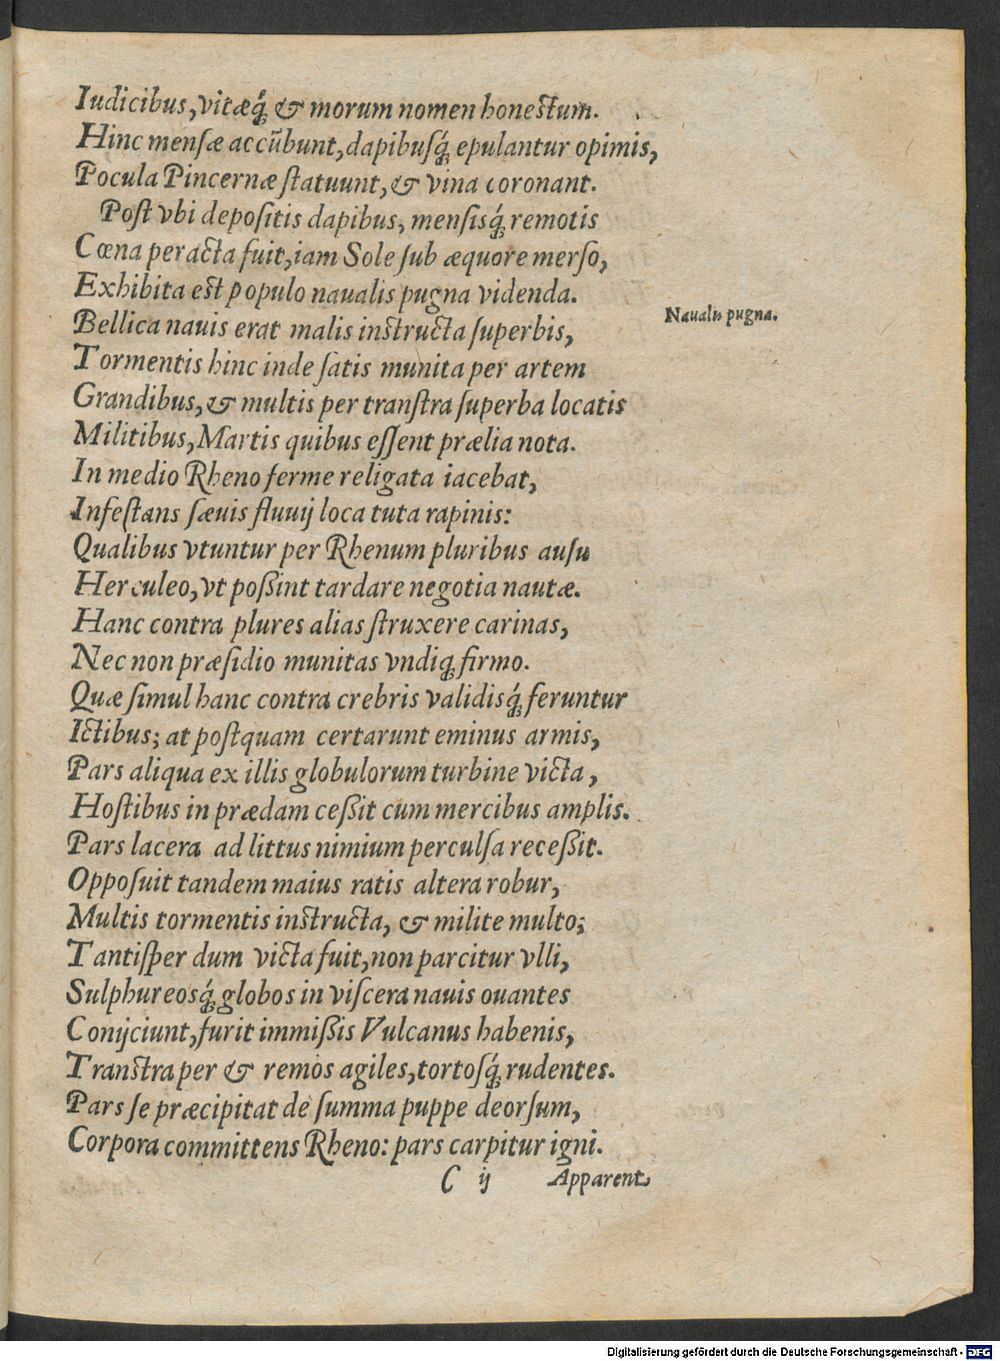 Iudicibus, vitæq́; & morum nomen honestum.
Hinc mensæ accũbunt, dapibuſq́; epulantur opimis,
Pocula Pincernæ ſtatuunt, & vina coronant.
Poſt vbi depoſitis dapibus, menſisq́; remotis
Cœna peracta fuit, iam Sole ſub æquore merſo,
Exhibita est populo naualis pugna videnda.
Naualis pugna.
Bellica nauis erat malis instructa ſuperbis,
Tormentis hinc inde ſatis munita per artem
Grandibus, & multis per tranſtra ſuperba locatis
Militibus, Martis quibus eſſent prælia nota.
In medio Rheno ferme religata iacebat,
Infeſtans ſæuis fluuij loca tuta rapinis:
Qualibus vtuntur per Rhenum pluribus auſu
Herculeo, vt poßint tardare negotia nautæ.
Hanc contra plures alias ſtruxere carinas,
Nec non præſidio munitas vndiq; firmo.
Quæ ſimul hanc contra crebris validisq́; feruntur
Ictibus; at poſtquam certarunt eminus armis,
Pars aliqua ex illis globulorum turbine victa,
Hoſtibus in prædam ceßit cum mercibus amplis.
Pars lacera ad littus nimium perculſa receßit.
Oppoſuit tandem maius ratis altera robur,
Multis tormentis instructa, & milite multo;
Tantiſper dum victa fuit, non parcitur vlli,
Sulphureosq́; globos in viſcera nauis ouantes
Conijciunt, furit immißis Vulcanus habenis,
Transtra per & remos agiles, tortoſq́; rudentes.
Pars ſe præcipitat de ſumma puppe deorſum,
Corpora committens Rheno: pars carpitur igni.
C ij Apparent
Digitalisierung gefördert durch die Deutsche Forschungsgemeinschaft - DFG